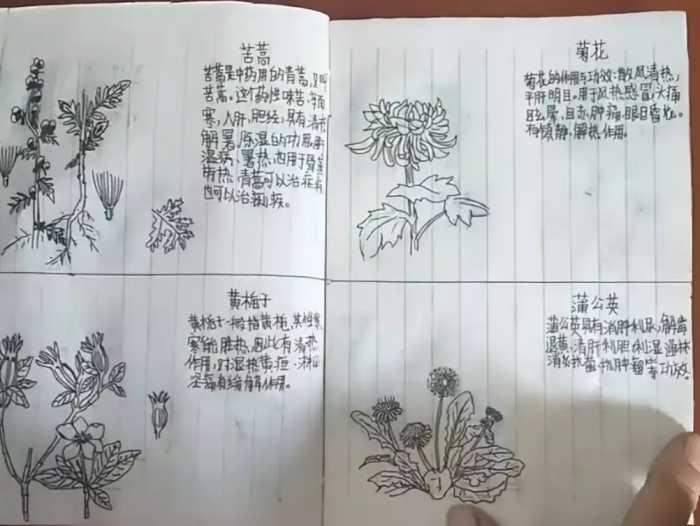 苦蒿
苦蒿是中药用的青蒿,又叫
苦蒿。这个药性味苦、辛
寒,入肝、胆经,具有清
解暑,除湿的功
湿病、暑热,也用于
热,青蒿可以治
也可以治疾。
菊花
菊花的作用与功效:散风清热,
平肝明目,用于风热感冒,头痛
眩晕,目赤肿痛,眼目昏花。
有镇静,解热作用。
黄栀子
黄栀子一般指黄栀,其性
寒能胜热,因此有清热
作用,对湿热黄疸、淋证
有缓解作用。
蒲公英
蒲公英具有消肿利尿,解毒
退黄,清肝利胆,利湿通淋
消炎抗菌,抗肿瘤等功效。